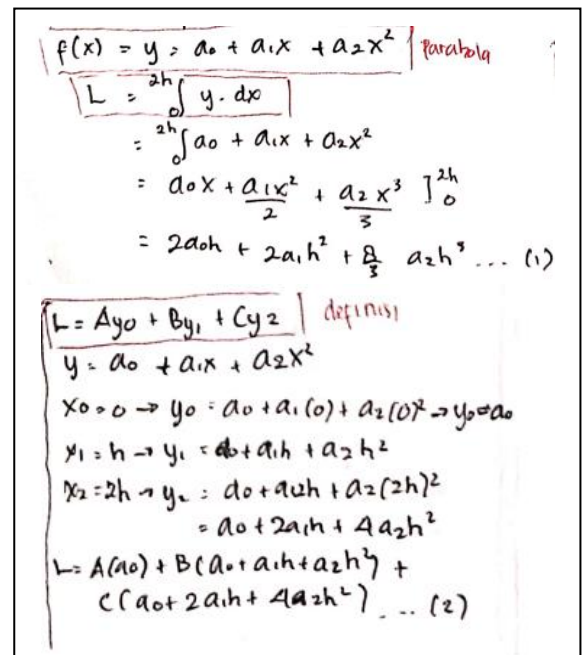 f(x) = y = a₀ + a₁x + a₂x² parabola
L = ₀²ʰ∫ y. dx
= ₀²ʰ∫ a₀ + a₁x + a₂x²
= a₀x + a₁x²/2 + a₂x³/3 ]₀²ʰ
= 2a₀h + 2a₁h² + 8/3 a₂h³ ... (1)
L = Ay₀ + By₁ + Cy₂ definisi
y = a₀ + a₁x + a₂x²
x₀ = 0 → y₀ = a₀ + a₁(0) + a₂(0)² → y₀ = a₀
x₁ = h → y₁ = a₀ + a₁h + a₂h²
x₂ = 2h → y₂ = a₀ + a₁2h + a₂(2h)²
= a₀ + 2a₁h + 4a₂h²
L = A(a₀) + B(a₀ + a₁h + a₂h²) +
C(a₀ + 2a₁h + 4a₂h²) ... (2)